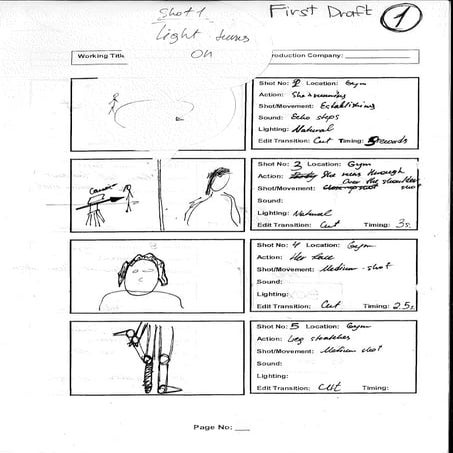 Shot 1
First Draft
1
Light turns
on
Working Title
roduction Company:
Shot No: 2 Location: Gym
Action: She is running
Shot/Movement: Establishing
Sound: Echo steps
Lighting: Natural
Edit Transition: Cut Timing: 5seconds
Camera
Shot No: 3 Location: Gym
Action: She runs through
Over the shoulder
Shot/Movement: shot
Sound:
Lighting: Natural
Edit Transition: Cut Timing: 3s.
Shot No: 4 Location: Gym
Action: Her face
Shot/Movement: Medium-shot
Sound:
Lighting:
Edit Transition: Cut Timing: 2.5s.
Shot No: 5 Location: Gym
Action: Leg stretches
Shot/Movement: Medium shot
Sound:
Lighting:
Edit Transition: Cut Timing:
Page No: